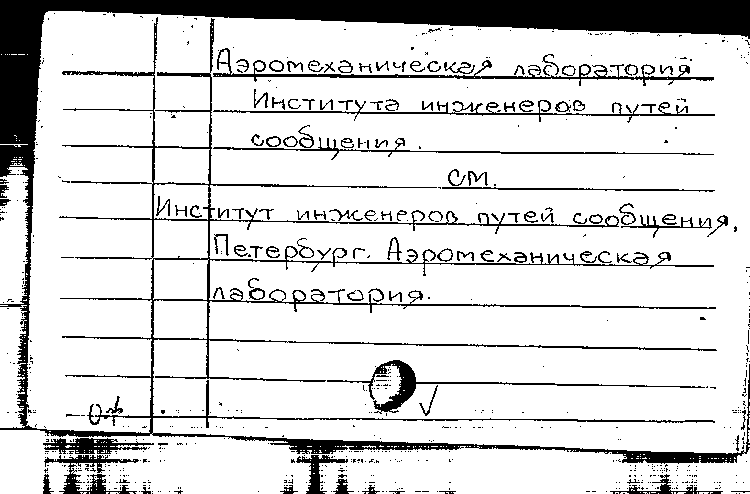 Аэромеханическая лаборатория
Института инженеров путей
сообщения.
см.
Институт инженеров путей сообщения,
Петербург. Аэромеханическая
лаборатория.